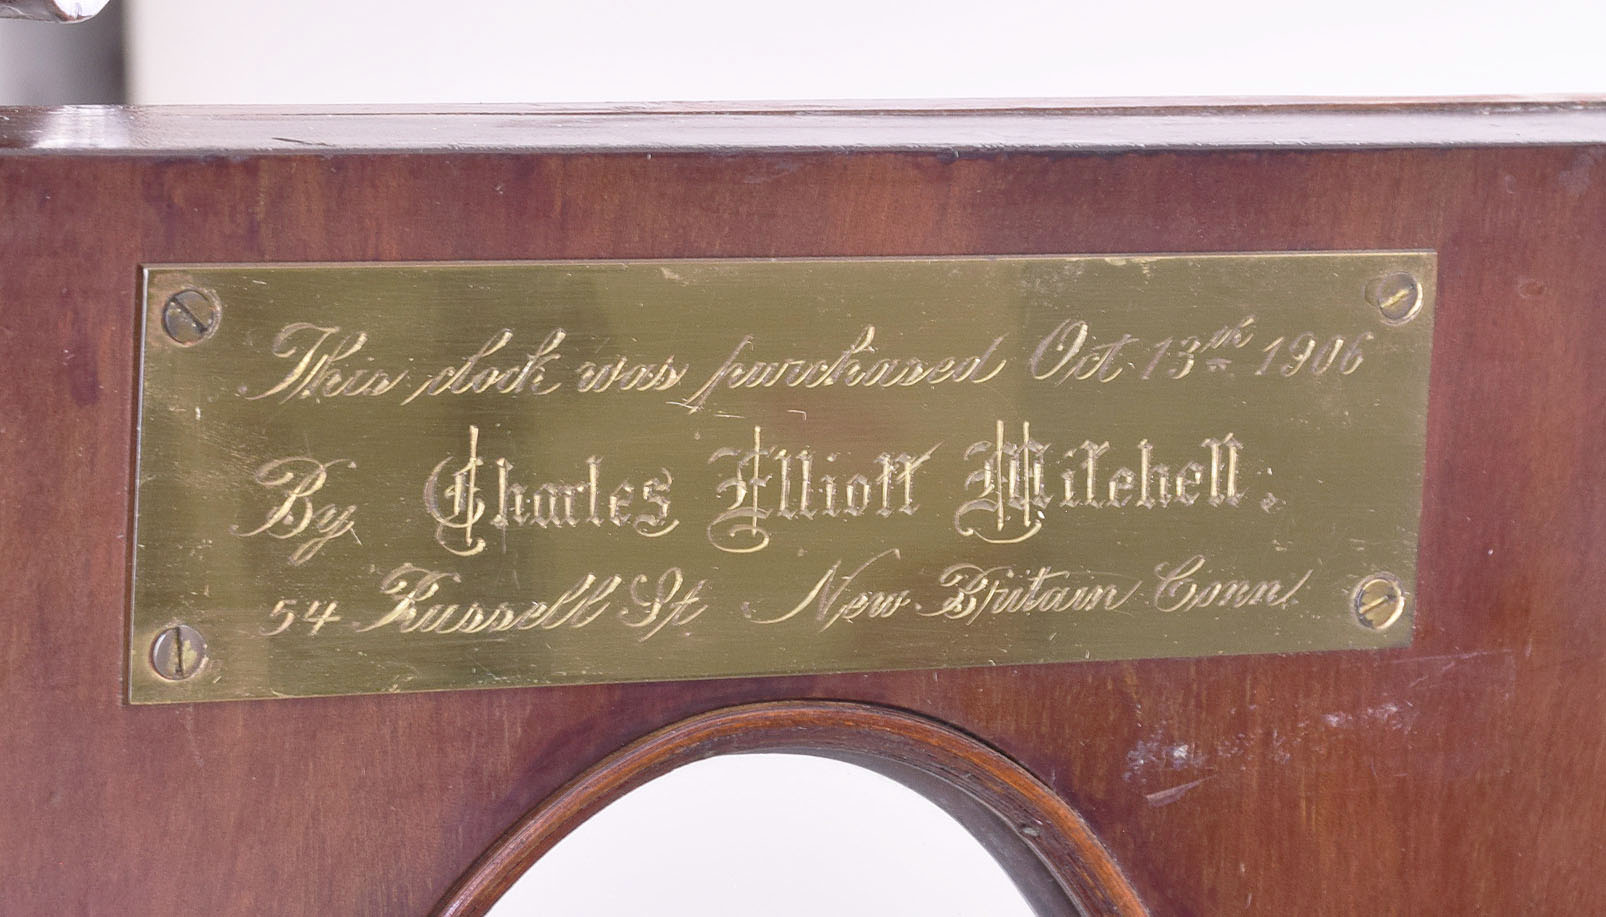 This clock was purchased Oct 13th 1906
By Charles Elliott Mitchell.
54 Russell St New Britain Conn